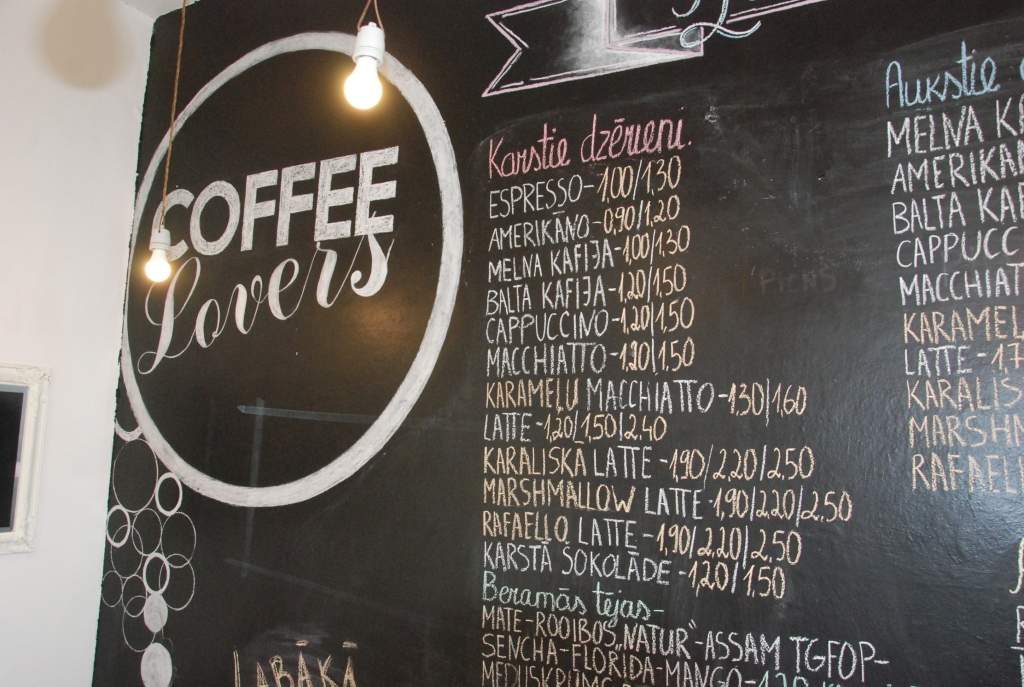 COFFEE
Lovers
Karstie dzērieni.
ESPRESSO-1,00/1,30
AMERIKĀNO-0,90/1,20
MELNA KAFIJA-1,00/1,30
BALTA KAFIJA-1,20/1,50
CAPPUCCINO-1,20/1,50
MACCHIATTO-1,20/1,50
KARAMEĻU MACCHIATTO-1,30/1,60
LATTE-1,20/1,50/2,40
KARALISKĀ LATTE-1,90/2,20/2,50
MARSHMALLOW LATTE-1,90/2,20/2,50
RAFAELLO LATTE-1,90/2,20/2,50
KARSTĀ ŠOKOLĀDE-1,20/1,50
Beramās tējas-
MATE-ROOIBOS„NATUR"-ASSAM TGFOP-
SENCHA-FLORIDA-MANGO-
LABĀKĀ
Aukstie
MELNA
AMERIKĀN
BALTA KAF
CAPPUCC
MACCHIAT
KARAMEĻ
LATTE-1,7
KARALIS
MARSHM
RAFAELL